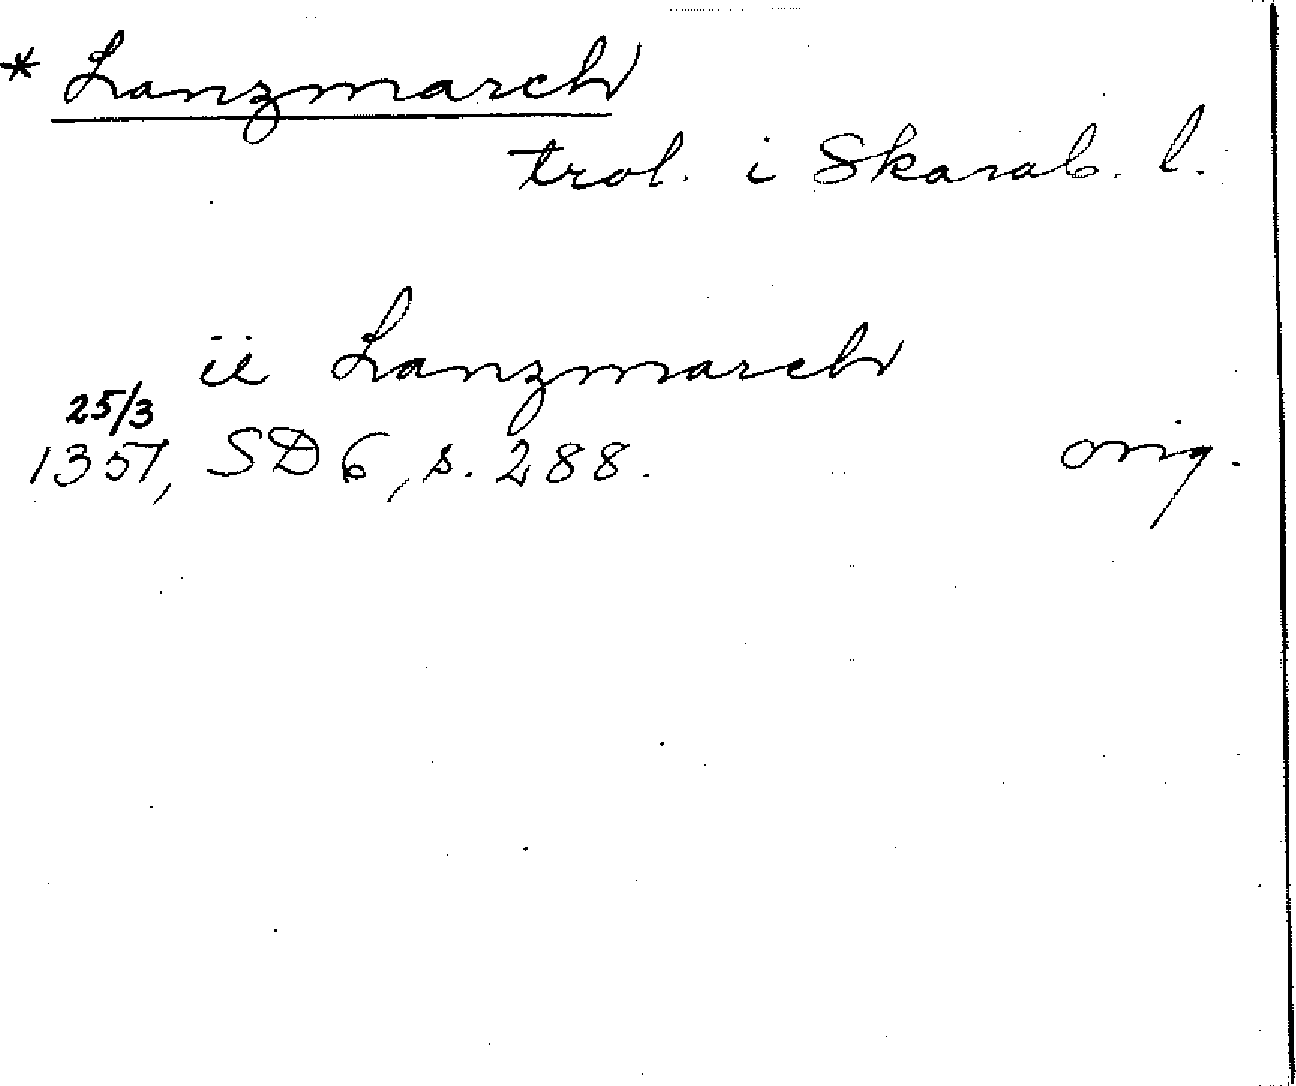 * Lanzmarch
trol. i Skarab. l.
ii Lanzmarch
25/3
1357, SD 6, s. 288. orig.